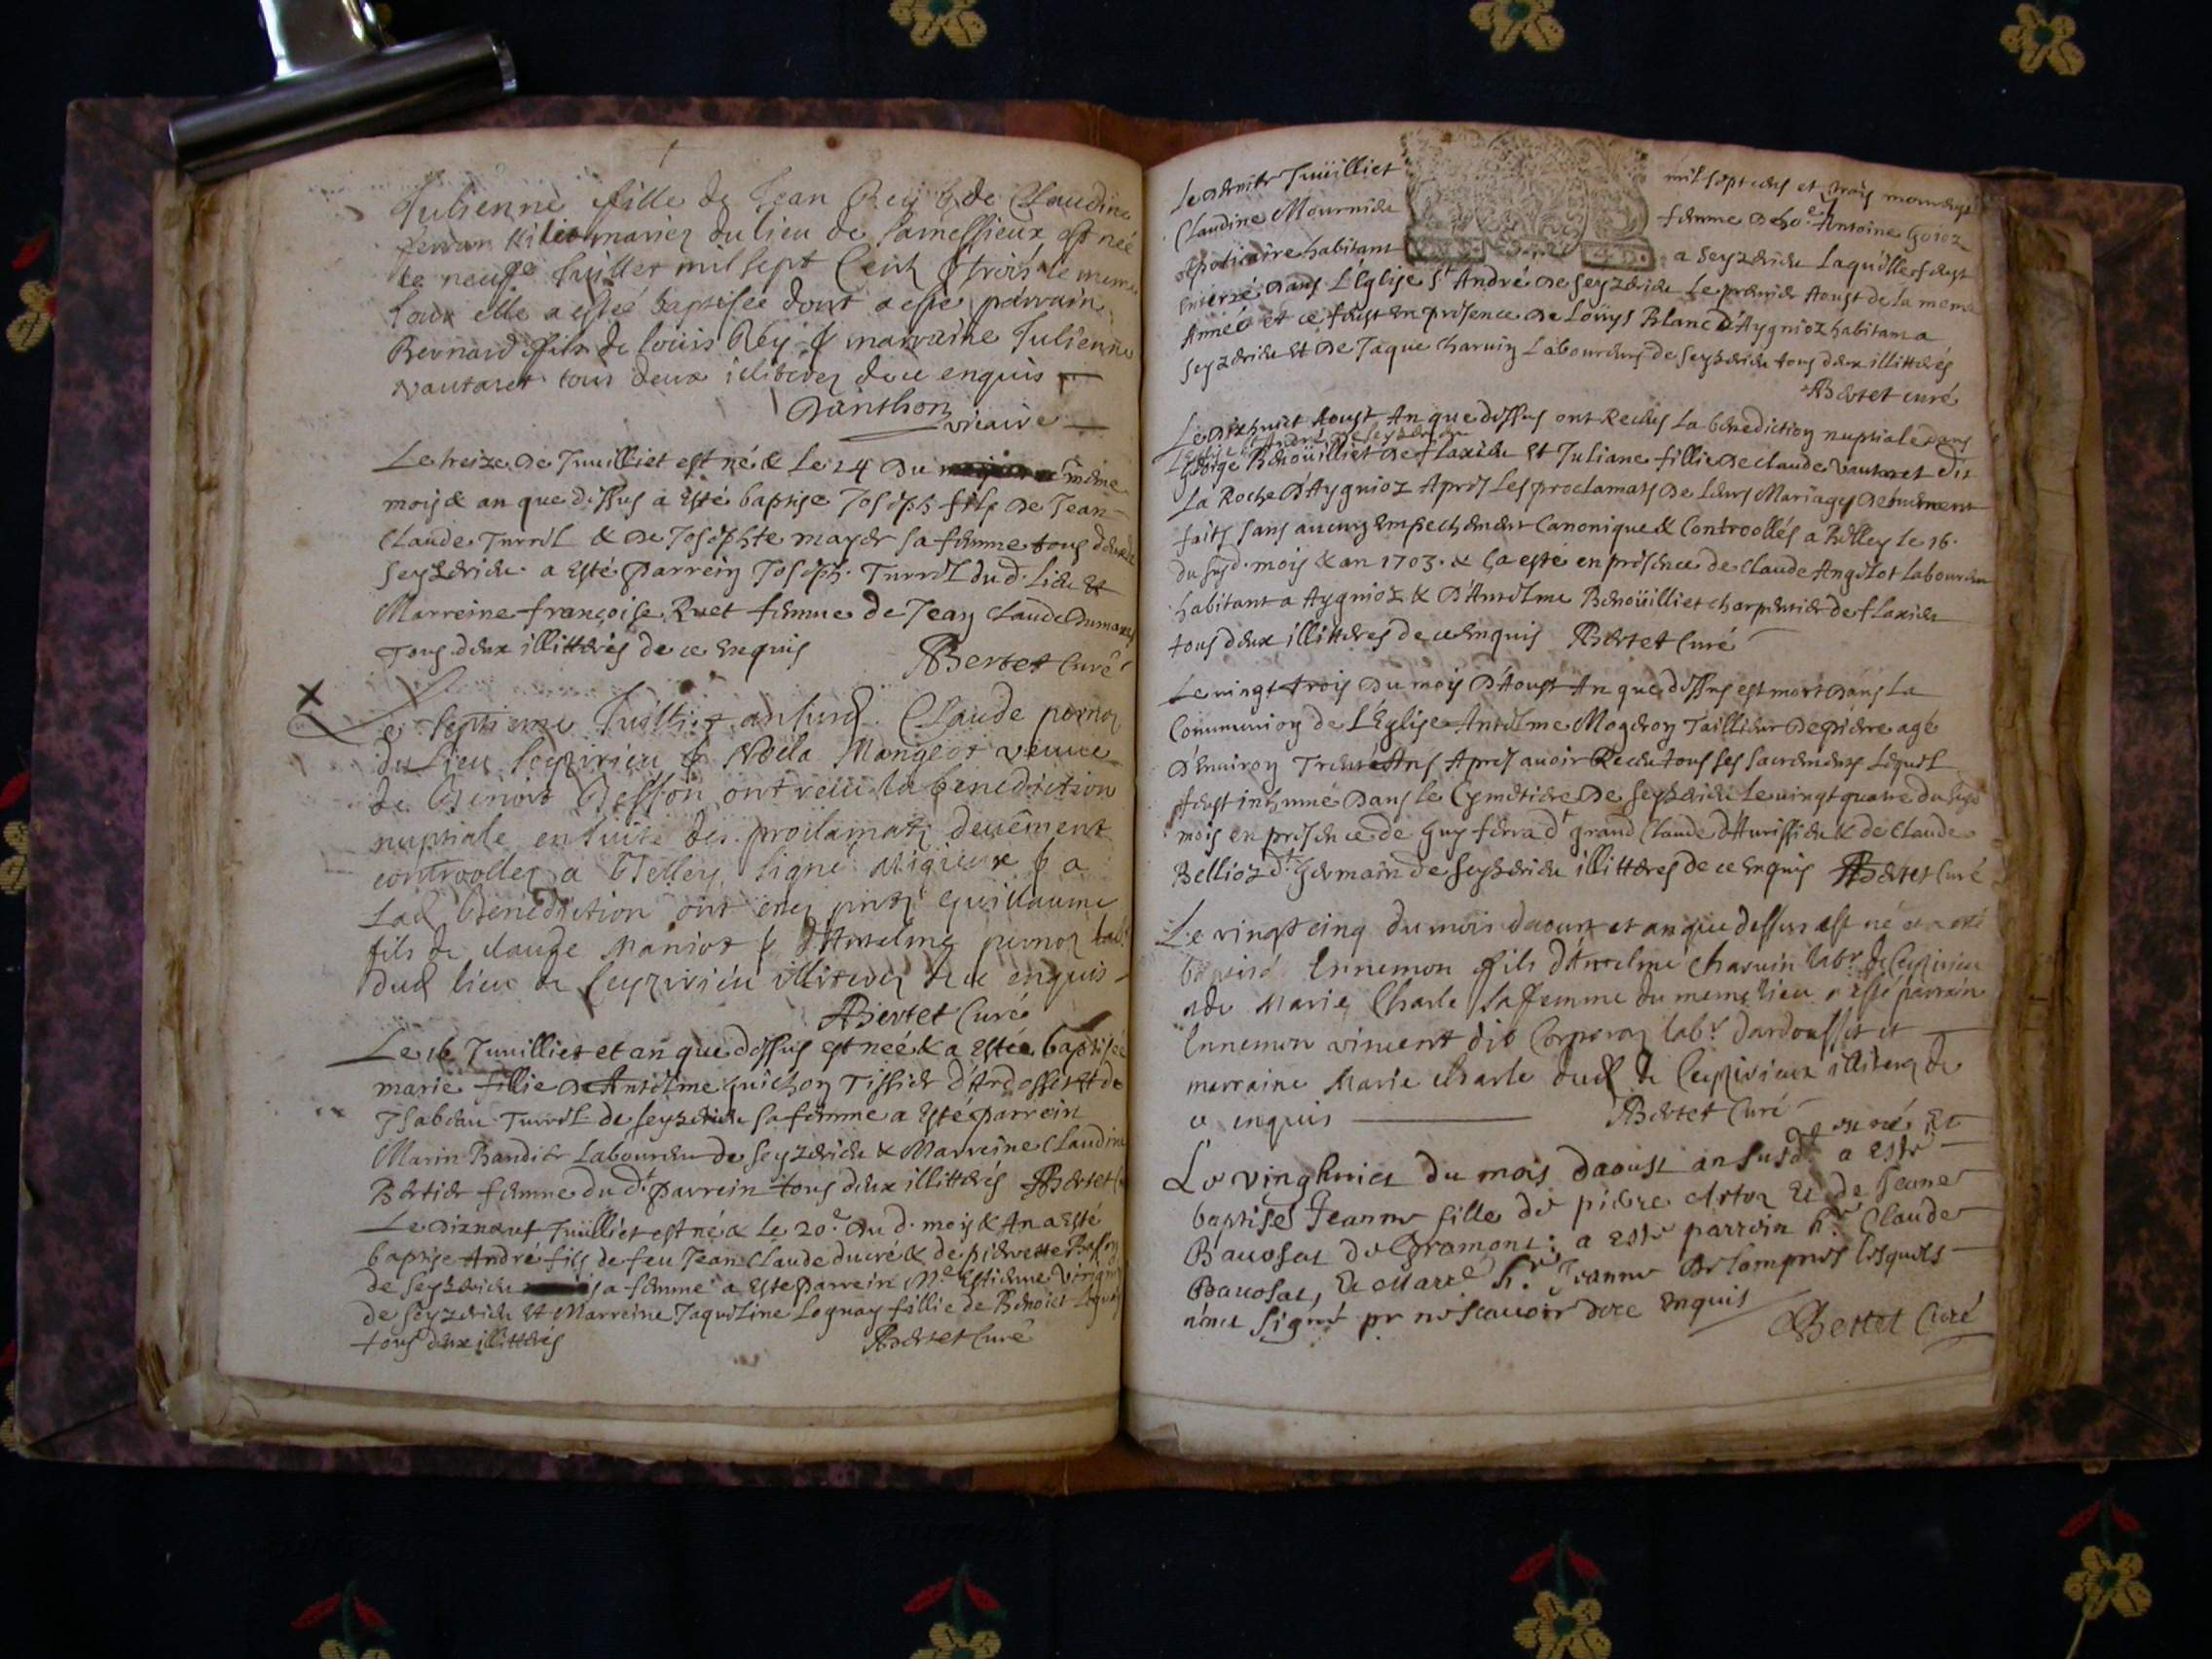 Julienne fille de Jean Rey & de Claudine
mariez du lieu de est née
le neuf Juillet mil sept Cent & trois le meme
Jour elle a estée baptisée dont a esté parrain
Bernard fils de Louis Rey & marraine Julienne
Vautaret tous deux illiterez de ce enquis
Danthon vicaire
Le treize de Juuilliet est né & Le 14 Du même
mois & an que dessus a Esté baptise Joseph fils De Jean
Claude Turrel & De Josephte mayer sa femme tous deux de
Seyzerieu a Esté Parrein Joseph Turrel du d. Lieu Et
Marreine françoise Ruet femme de Jean Claude
Tous deux illitterés de ce Enquis Bertet Curé
Le septieme Juilliet an susd. Claude pernoz
du Lieu Ceyzirieu & Noela Mangeot veuve
de Benoit Besson ont receu la benediction
nuptiale ensuite des proclamatz deuêment
controollez a Belley signé Migieux & a
Lad. Benediction ont eney pntz Guillaume
fils de claude Maniot & d'Antelme pernoz lab.r
dud lieu de Ceyzirieu illiterez de ce enquis
Bertet Curé
Le 16 Juuilliet et an que dessus est née & a Estée baptisée
marie fillie De Antelme Guichon Tissier d'Ardosset & de
Isabeau Turrel de Seyzerieu sa femme a Esté Parrein
Marin Bandier Laboureur de Seyzerieu & Marreine Claudine
Bertier femme du d.t Parrein tous deux illitterés Bertet
Le Dixneuf Juilliet est né & Le 20.e Du d. mois & An a Esté
baptise André fils de feu Jean Claude ducré & de pierrette
de Seyzerieu sa femme a Esté Parrein M.e Estienne
de Seyzerieu Et Marreine Jaqueline Lognay fillie de Benoict
tous deux illitterés Bertet Curé
Le dernier Juüilliet mil sept cens et trois mourust
Claudine Mournieu femme de ho.e Antoine Goioz
Apoticaire habitant a Seyzerieu Laquelle feust
Enterré Dans L'Eglise S.t André de Seyzerieu Le premier Aoust de La meme
Année et ce feust En presence de Loüys Blanc d'Aygnioz habitant a
Seyzerieu Et De Jaque Charuin Laboureurs de Seyzerieu tous deux illitterés
Bertet curé
Le Dixhuict Aoust An que dessus ont Receus La benediction nuptiale Dans
L'Eglise St André de Seyzerieu
George Benoüilliet De flaxieu Et Juliane fillie De Claude Vautaret dit
La Roche D'Aygnioz Apres Les proclamats De Leurs Mariages Deüement
faits sans aucun Empechement Canonique & Controollés a Belley Le 16.
du susd. mois & an 1703. & ça esté en presence de Claude Angelot Laboureur
habitant a Aygnioz & D'Antelme Benoüilliet charpentier de flaxieu
tous deux illitteres de ce Enquis Bertet Curé
Le vingt trois Du mois D'Aoust An que dessus est mort Dans La
Communion de L'Eglise Antelme Mogeron Taillieur De pierre agé
D'Enuiron Trente Ans Apres auoir Receu tous ses sacremens Lequel
feust inhumé Dans le Cymetiere De Seyzerieu Le vingt quatre du susd
mois en presence de Guy ferra d.t grand Claude d'Aurissieu & de Claude
Bellioz d.t Germain de Seyzerieu illitteres de ce Enquis Bertet Curé
Le vingt cinq du mois daoust et an que dessus est né et a esté
baptisé Ennemon fils d'Antelme Charuin lab.r de Ceyzirieu
& de Marie Charle sa femme du meme lieu a esté parrain
Ennemon vincent dit Corporaz lab.r dardosset et
marraine Marie Charle dud de Ceyzirieux illiterez de
ce enquis Bertet Curé
est née Et
Le vingthuict du mois daoust an susd.t a Esté
baptisée Jeanne fille de pierre Artoz Et de Jeane
Bauosat de Gramont: a Esté parrein h.e Claude
Bauosat, Et Mare h.e Jeanne De Lompnes Lesquels
n'ont signé pr ne scauoir de ce Enquis
Bertet Curé